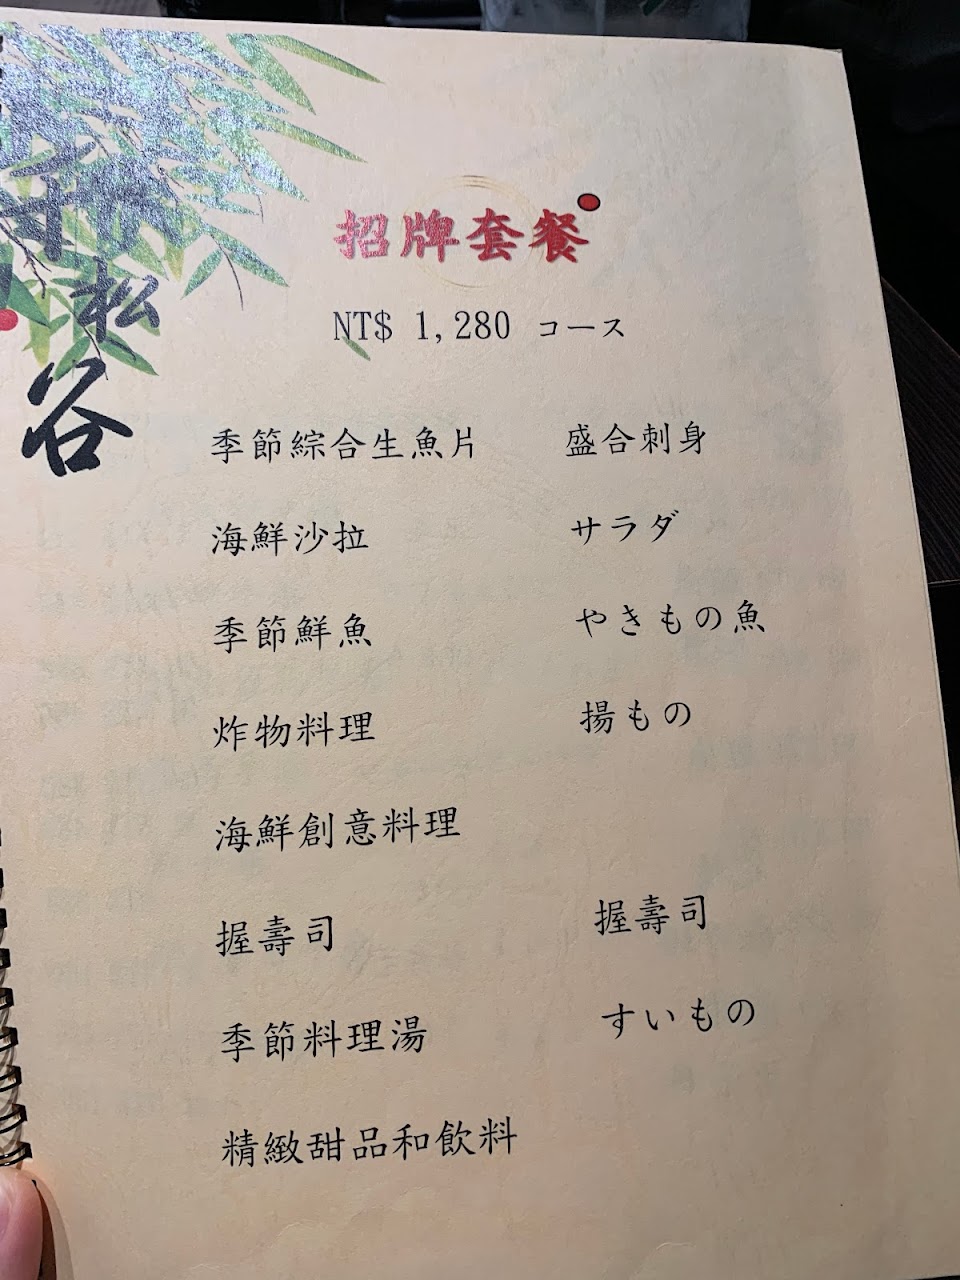 松
谷
招牌套餐
NT$ 1,280 コース
季節綜合生魚片 盛合刺身
海鮮沙拉 サラダ
季節鮮魚 やきもの魚
炸物料理 揚もの
海鮮創意料理
握壽司 握壽司
季節料理湯 すいもの
精緻甜品和飲料